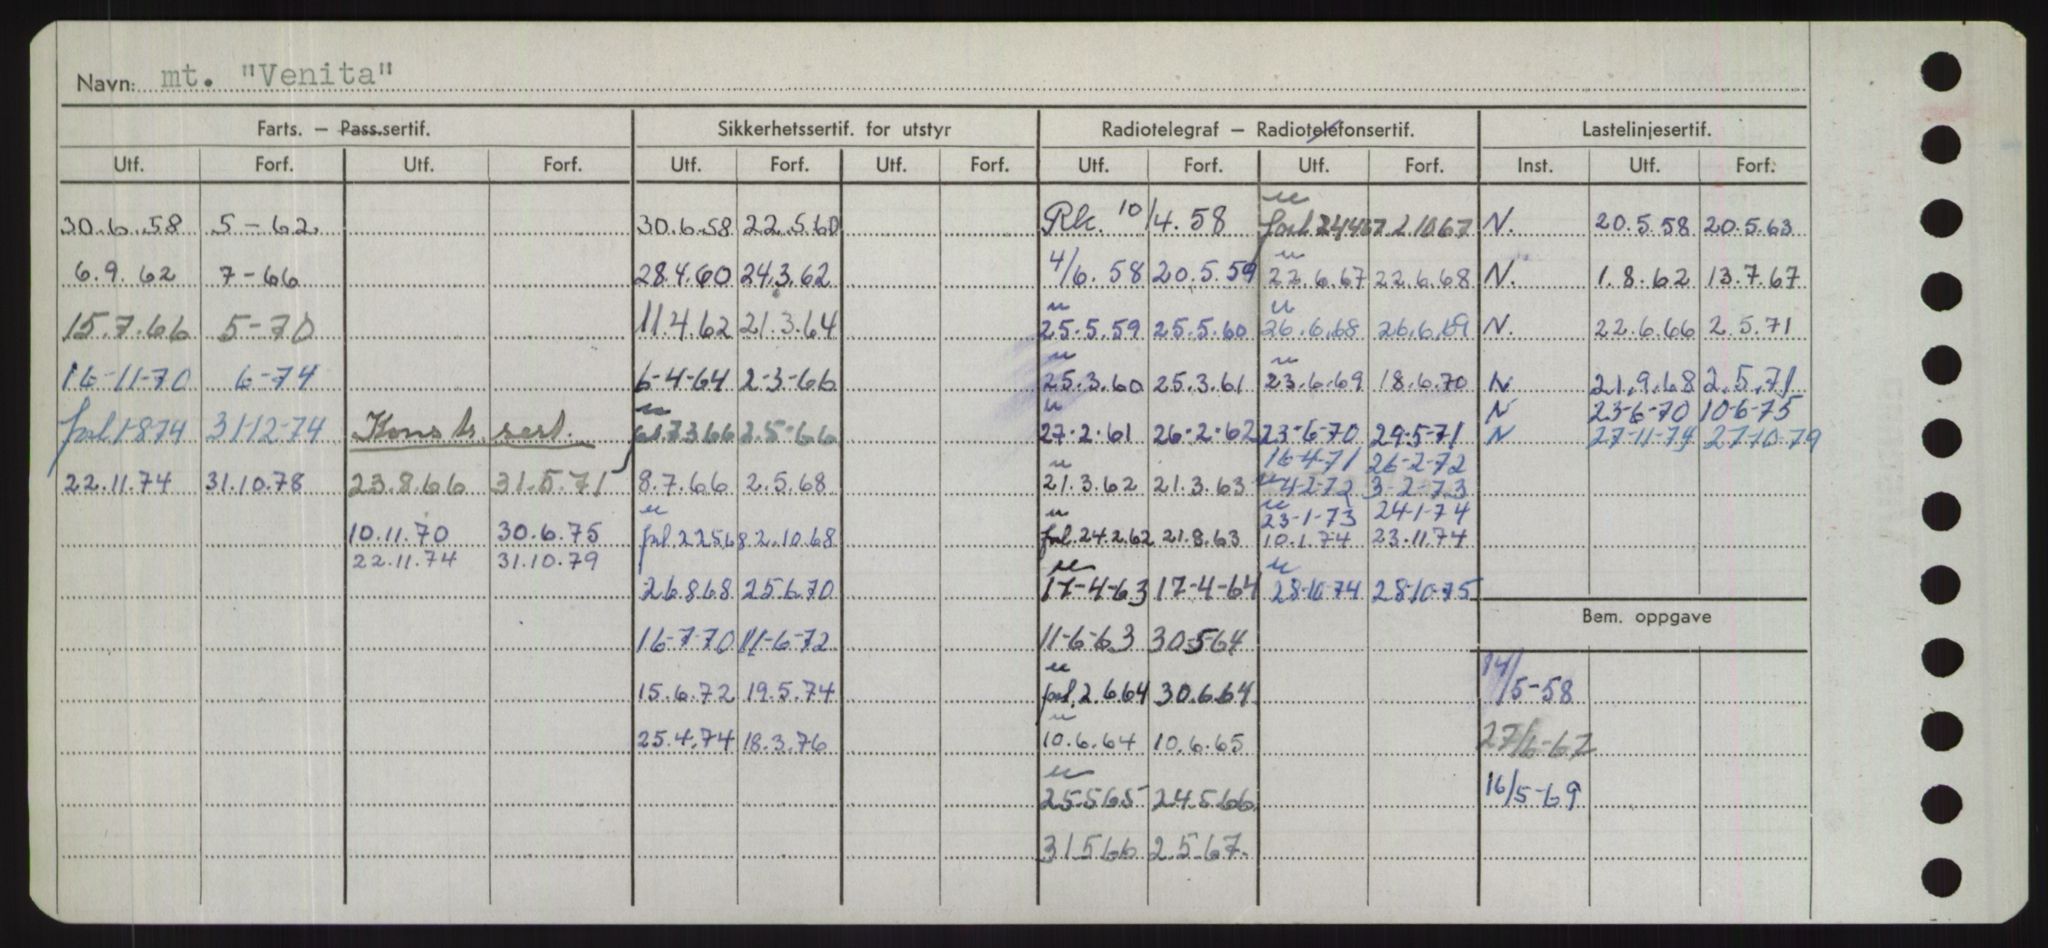 Navn: mt. "Venita"
Farts. — Pass.sertif. Sikkerhetssertif. for utstyr Radiotelegraf — Radiotelefonsertif. Lastelinjesertif.
Utf. Forf. Utf. Forf. Utf. Forf. Utf. Forf. Utf. Forf. Utf. Forf. Inst. Utf. Forf.
30.6.58 5-62 30.6.58 22.5.60 Rk. 10/4.58 2.10.67 N. 20.5.58 20.5.63
6.9.62 7-66 28.4.60 24.3.62 4/6.58 20.5.59 22.6.67 22.6.68 N. 1.8.62 13.7.67
15.7.66 5-70 11.4.62 21.3.64 25.5.59 25.5.60 26.6.68 26.6.69 N. 22.6.66 2.5.71
16-11-70 6-74 6-4-64 2-3-66 25.3.60 25.3.61 23.6.69 18.6.70 N 21.9.68 2.5.71
N 23-6-70 10-6-75
1-8-74 31-12-74 Konstr. sert. 7.3.66 2.5.66 27.2.61 26.2.62 23-6-70 29-5-71 N 27-11-74 27-10-79
16-4-71 26-2-72
22.11.74 31.10.78 23.8.66 31.5.71 8.7.66 2.5.68 21.3.62 21.3.63 4-2-72 3-2-73
23-1-73 24-1-74
10.11.70 30.6.75 22568 2.10.68 24.2.62 21.8.63 10.1.74 23.11.74
22.11.74 31.10.79
26868 25670 17-4-63 17-4-64 28-10-74 28-10-75
Bem. oppgave
16-7-70 11-6-72 11-6-63 30564
15.6.72 19.5.74 2.6.64 30.6.64 14/5-58
25.4.74 18.3.76 10.6.64 10.6.65 27/6-62
25565 24566 16/5-69
31566 2.5.67.